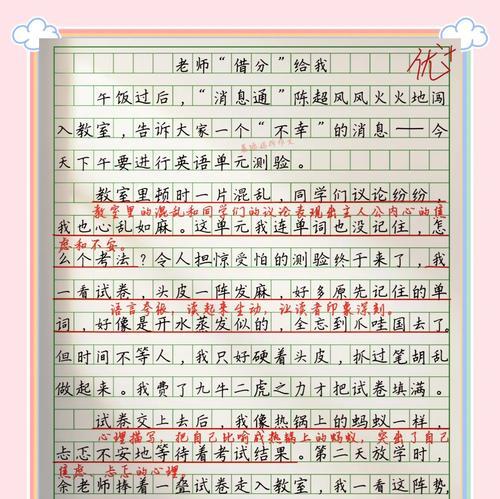 老师“借分”给我
优+
午饭过后，“消息通”陈超风风火火地闯
入教室，告诉大家一个“不幸”的消息——今
天下午要进行英语单元测验。
教室里顿时一片混乱，同学们议论纷纷，
教室里的混乱和同学们的议论表现出主人公内心的焦
我也心乱如麻。这单元我连单词也没记住，怎
虑和不安。
么个考法？令人担惊受怕的测验终于来了，我
一看试卷，头皮一阵发麻，好多原先记住的单
语言夸张，读起来生动，让读者印象深刻。
词，好像是开水蒸发似的，全忘到爪哇国去了。
但时间不等人，我只好硬着头皮，抓过笔胡乱
做起来。我费了九牛二虎之力才把试卷填满。
试卷交上去后，我像热锅上的蚂蚁一样，
心理描写，把自己比喻成热锅上的蚂蚁，突出了自己
忐忑不安地等待着考试结果。第二天放学时，
焦虑、忐忑的心理。
余老师捧着一叠试卷走入教室，我一看这阵势，